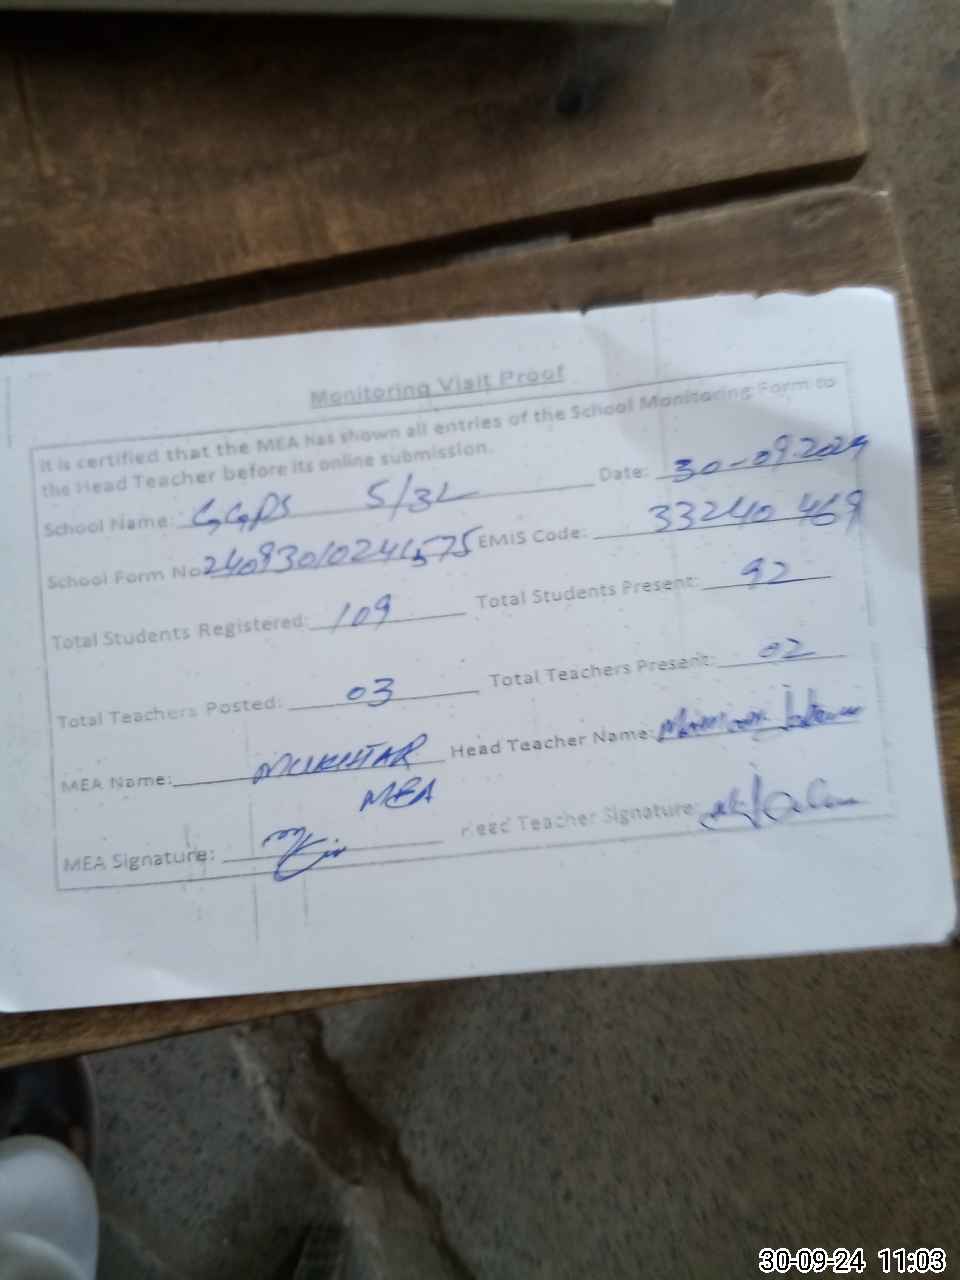 Monitoring Visit Proof
It is certified that the MEA has shown all entries of the School Monitoring Form to
the Head Teacher before its online submission.
School Name: GGPS 5/3L Date: 30-09-2024
School Form No EMIS Code: 33240469
Total Students Registered: 109 Total Students Present: 92
Total Teachers Posted: 03 Total Teachers Present: 02
MEA Name: MUKHTAR Head Teacher Name:
MEA
MEA Signature: Head Teacher Signature:
30-09-24 11:03